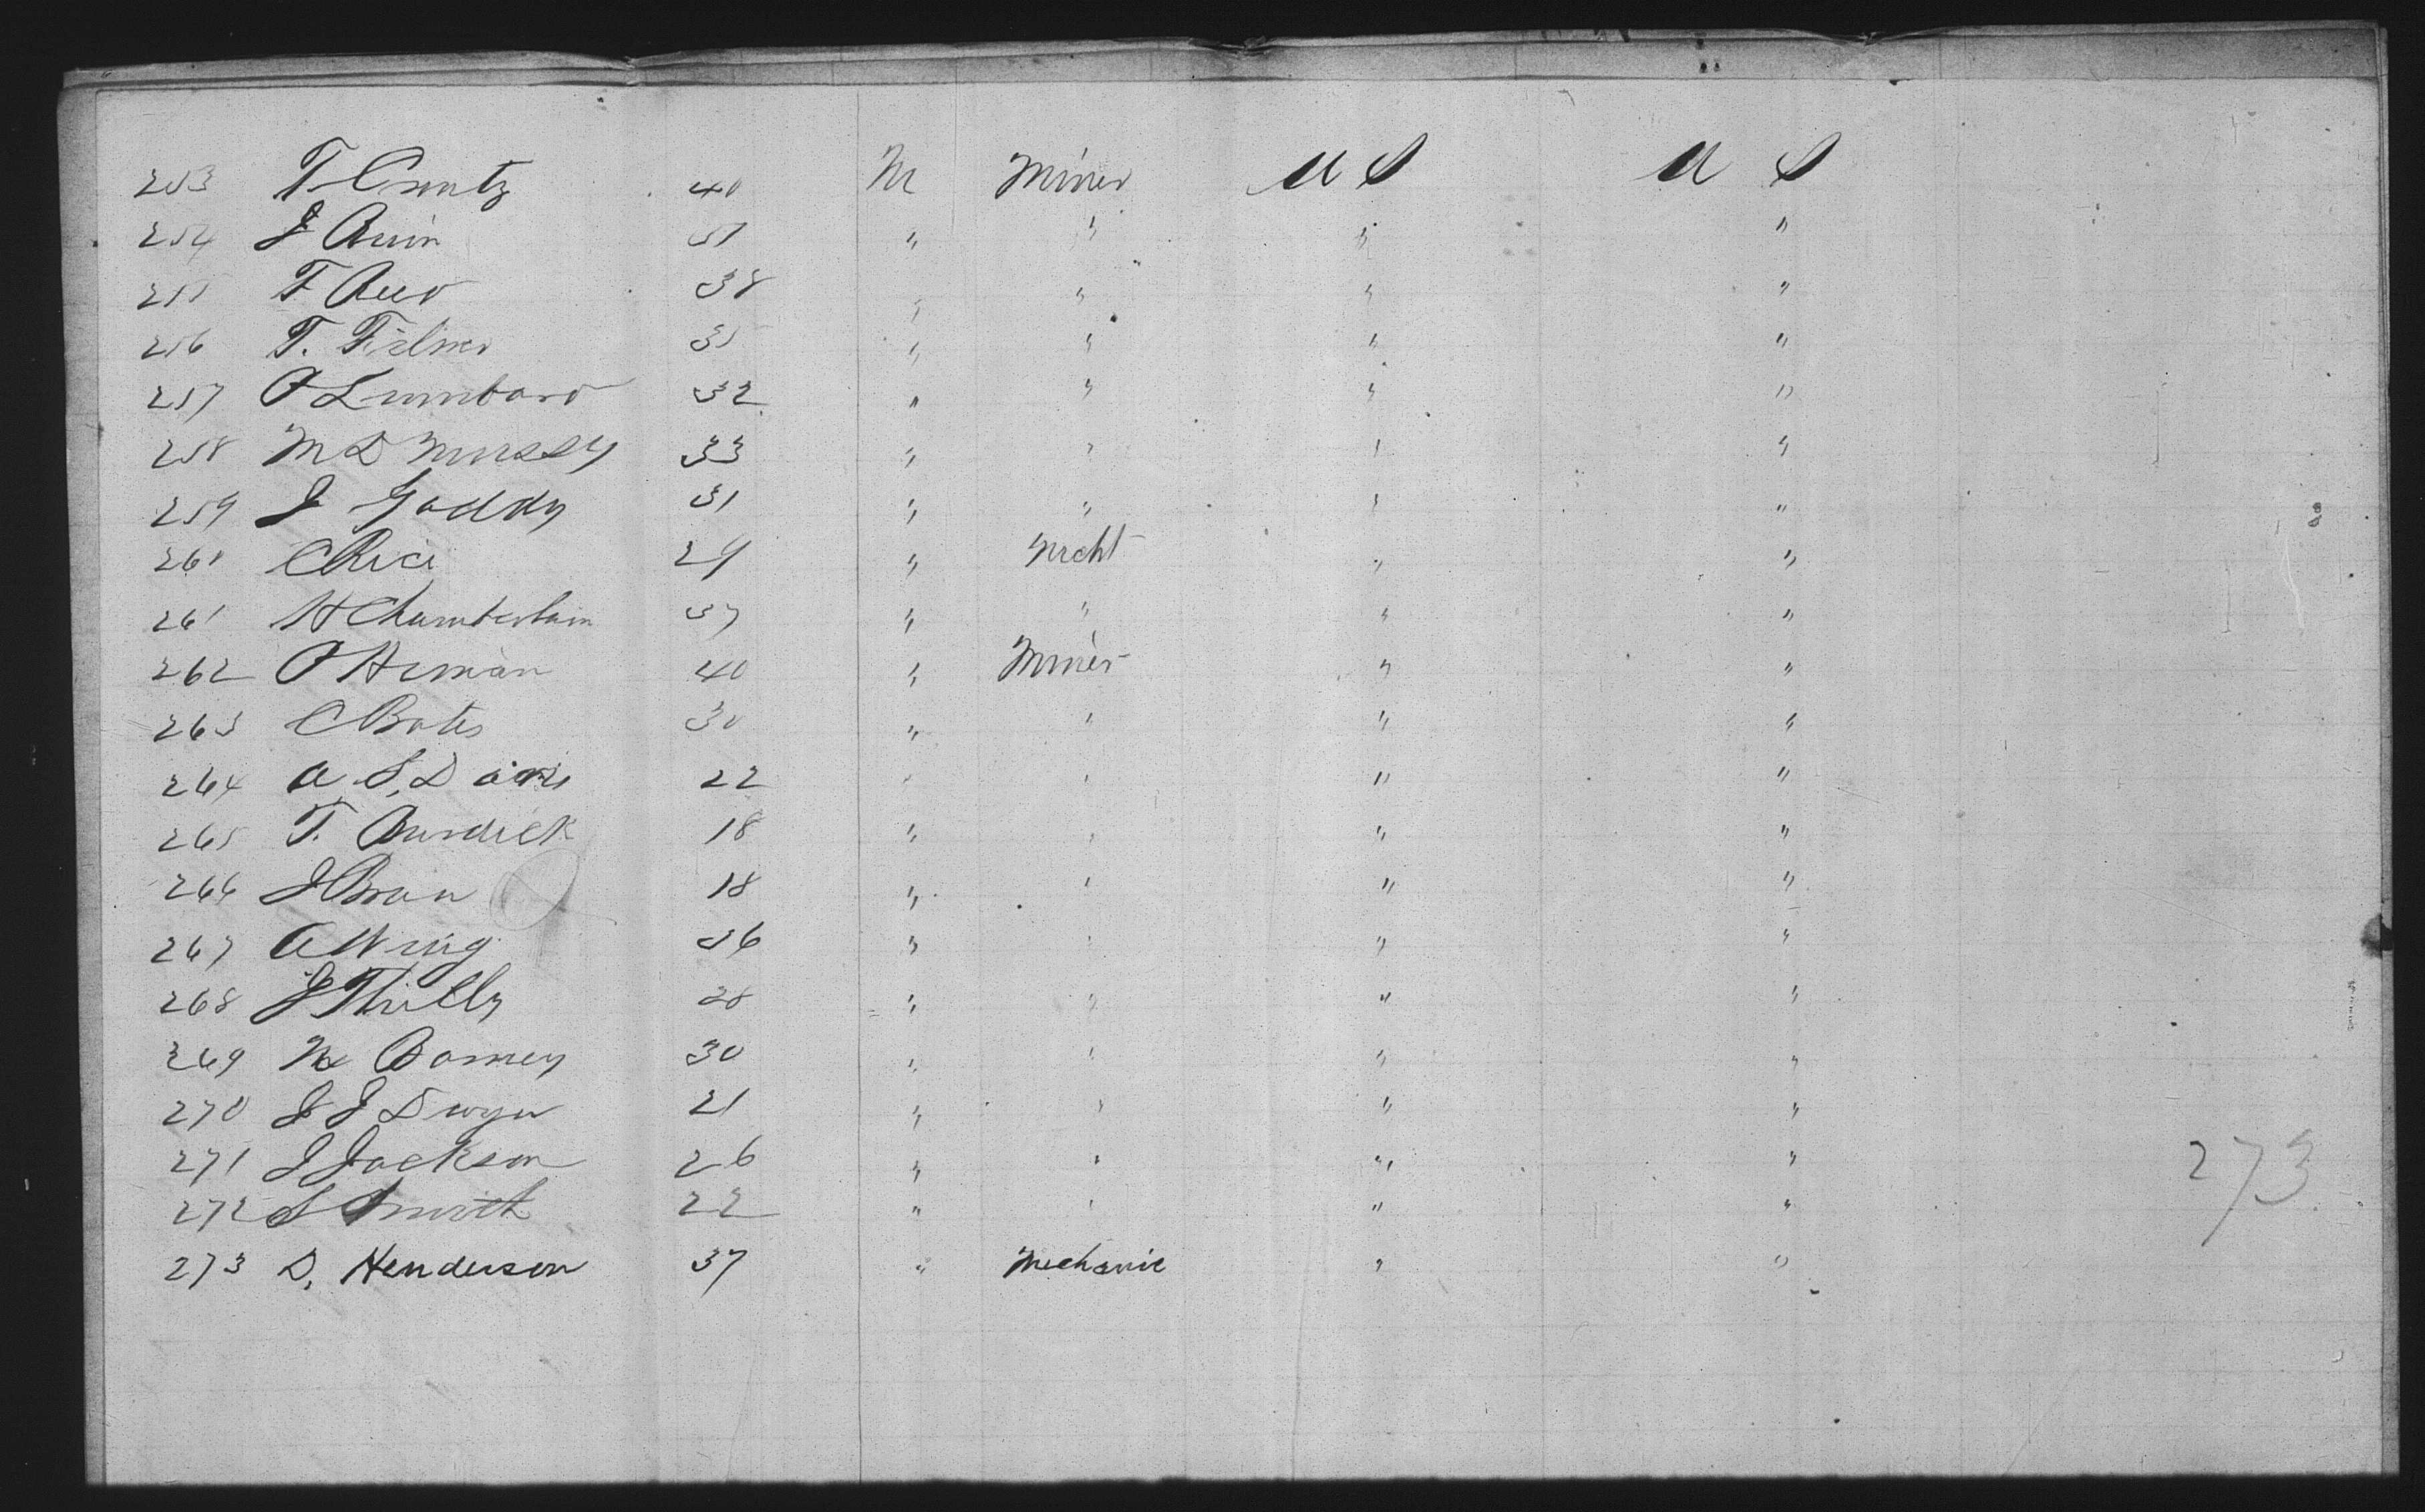 253 T 40 M Miner U S U S
254 J " " " "
255 F 38 " " " "
256 T. 35 " " " "
257 Lumbard 32 " " " "
258 M D 33 " " " "
259 J Gaddy 31 " " " "
260 C Rice 29 " " "
261 H Chamberlain 37 " " " "
262 Heman 40 " Miner " "
263 C Bates 30 " " " "
264 A. S. Davis 22 " " " "
265 T. Burdick 18 " " " "
266 J 18 " " " "
267 A Wing 36 " " " "
268 J 28 " " " "
269 Barney 30 " " " "
270 J J Dwyer 21 " " " "
271 J Jackson 26 " " " "
272 S Smith 22 " " " "
273 D. Henderson 37 " Mechanic " "
273